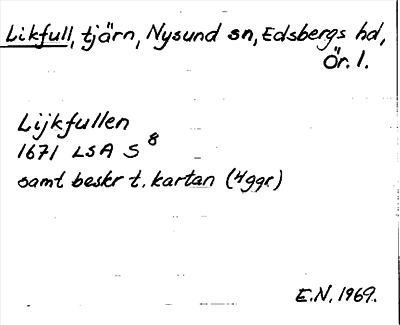 Likfull, tjärn, Nysund sn, Edsbergs hd,
Ör. l.
Lijkfullen
1671 LSA S 8
samt beskr t. kartan (4 ggr)
E.N. 1969.